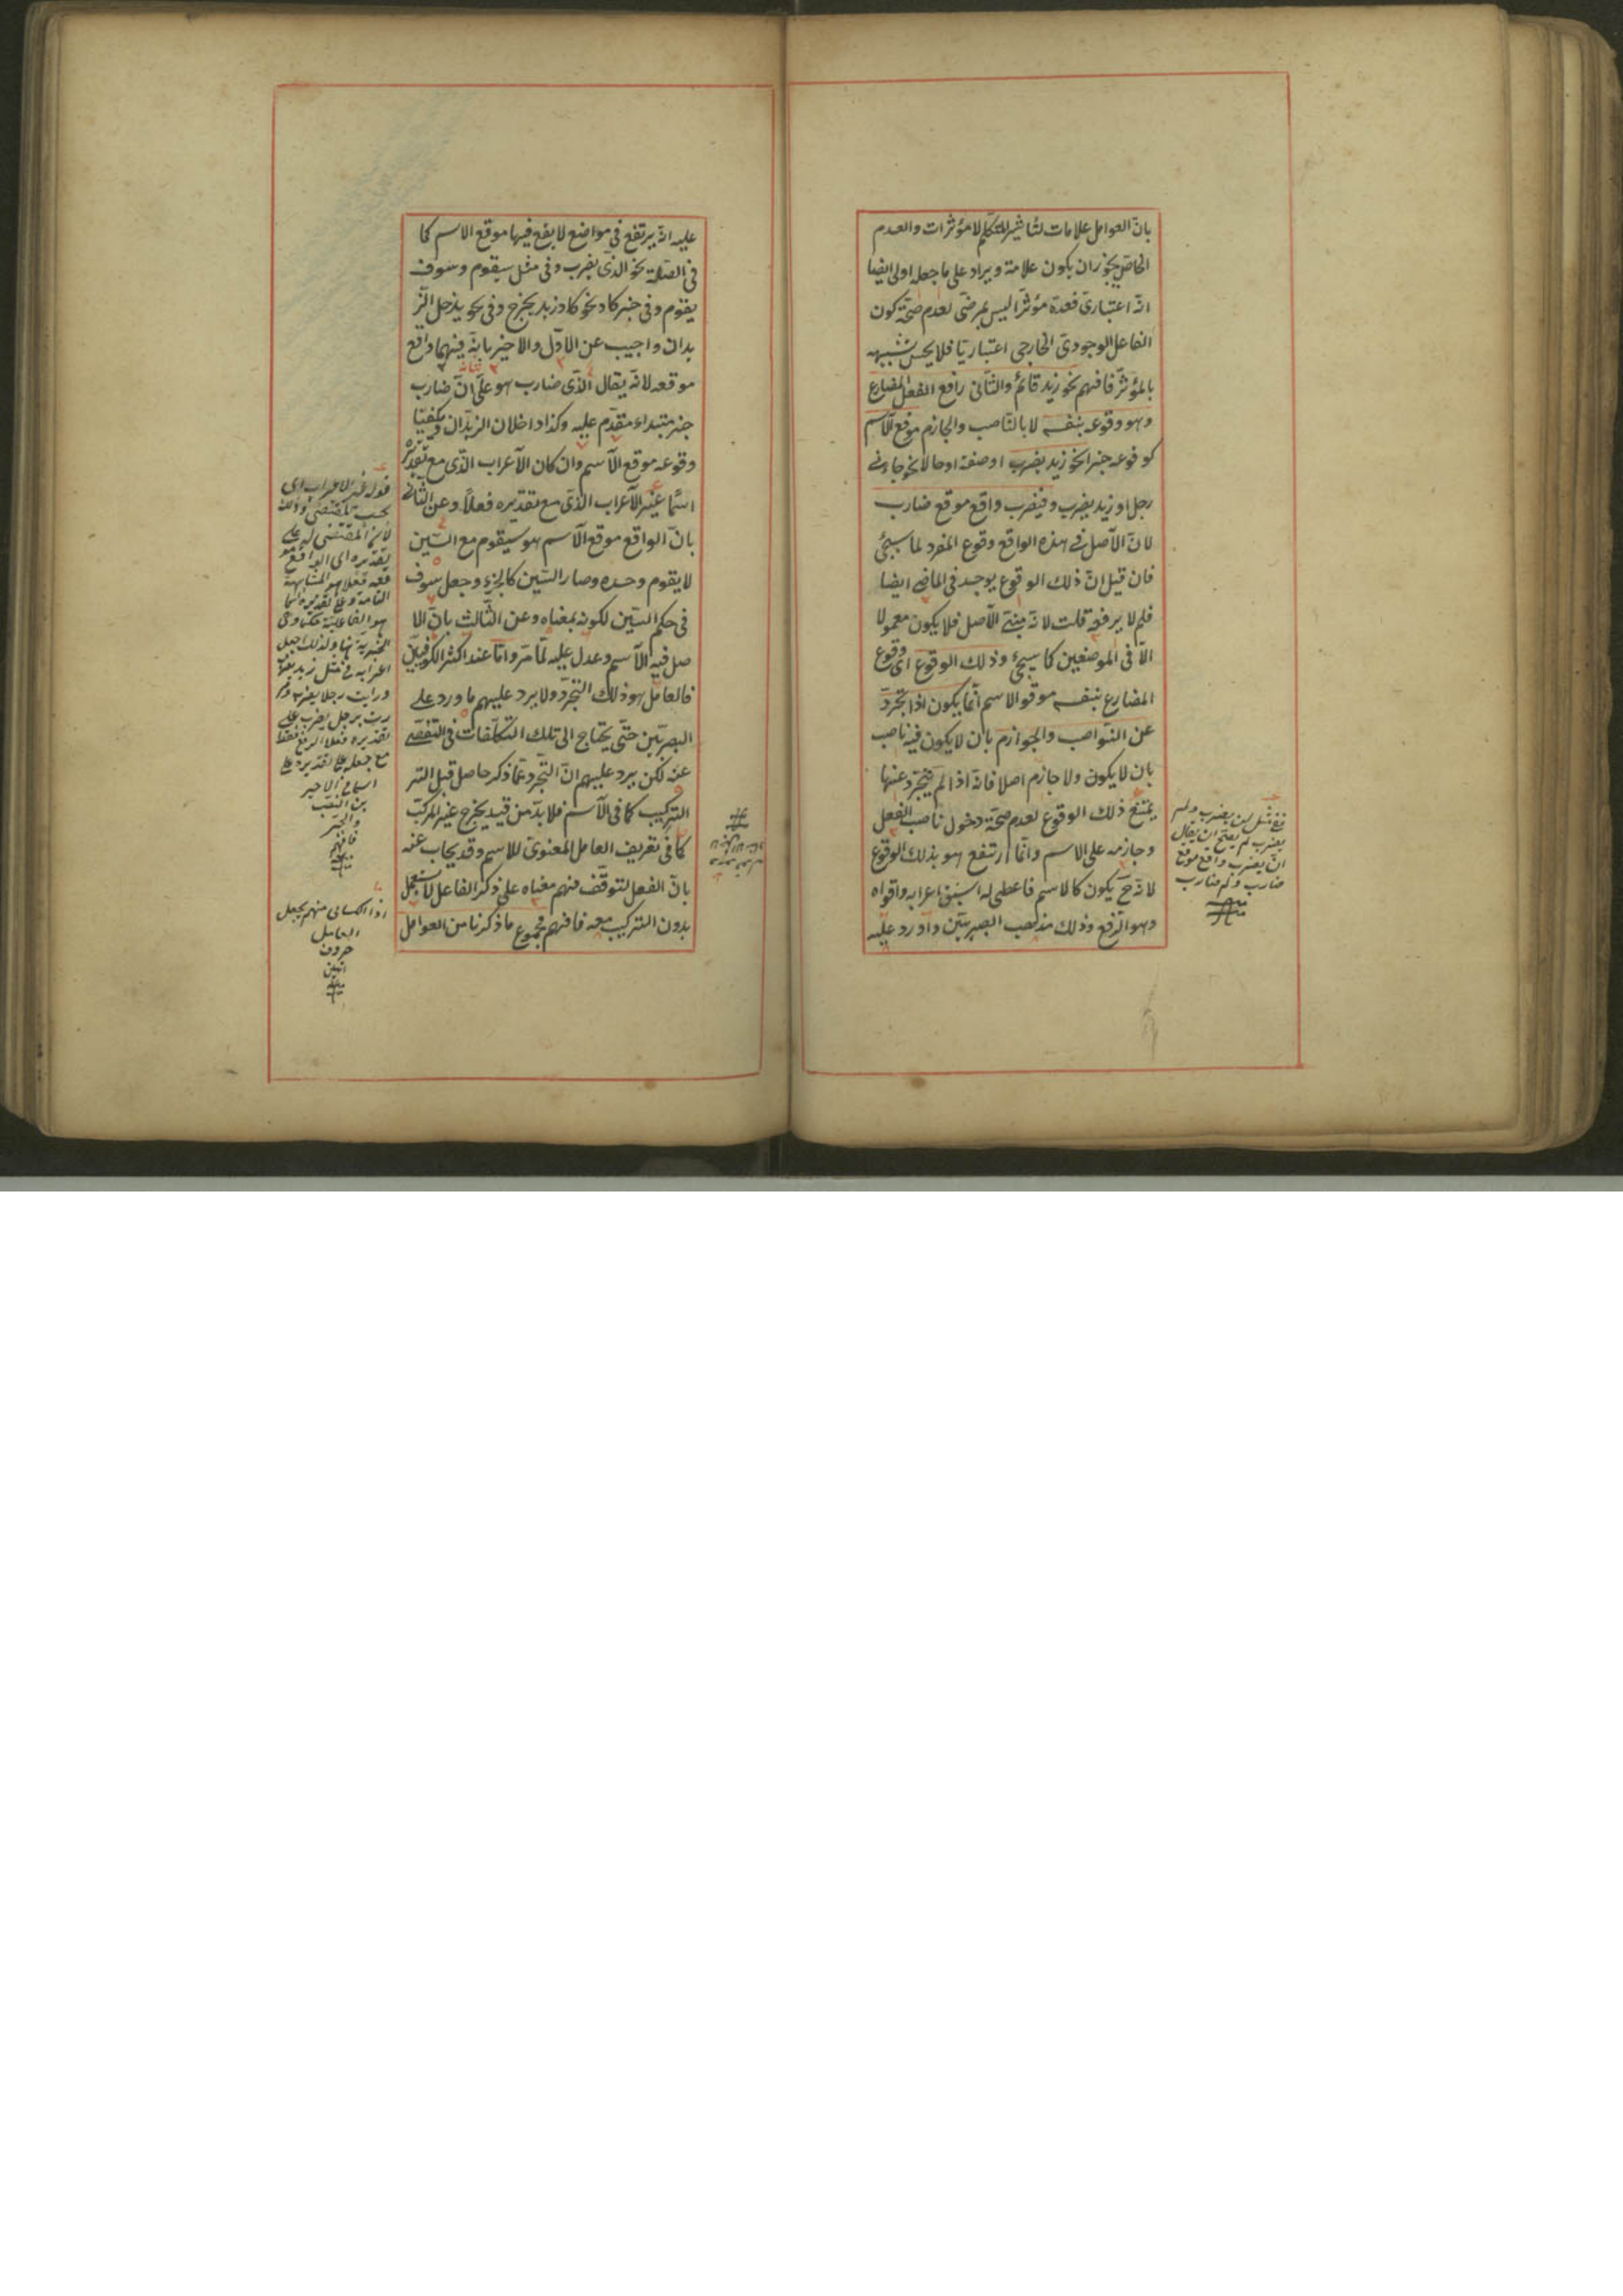 بان العوامل علامات لتأثير المتكلم لا مؤثرات والعدم
الخاص يجوز ان يكون علامة ويراد على ما جعله اولى ايضا
انه اعتبارى فعده مؤثرا ليس بمرضى لعدم صحة كون
الفاعل الوجودى الخارجى اعتباريا فلا يحسن تشبيهه
بالمؤثر فافهم نحو زيد قائم والثانى رافع الفعل المضارع
وهو وقوعه بنفسه لا بالناصب والجازم موقع الاسم
كوقوعه خبرا نحو زيد يضرب او صفة او حالا نحو جاءنى
رجل او زيد يضرب وفيضرب واقع موقع ضارب
لان الاصل فى هذه الواقع وقوع المفرد لما سيجئ
فان قيل ان ذلك الوقوع يوجد فى الماضى ايضا
فلم لا يرفع قلت لانه مبنى الاصل فلا يكون معمولا
الا فى الموضعين كما سيجئ وذلك الوقوع اى وقوع
المضارع بنفسه موقع الاسم انما يكون اذا تجرد
عن النواصب والجوازم بان لا يكون فيه ناصب
بان لا يكون ولا جازم اصلا فانه اذا لم يتجرد عنها
يمتنع ذلك الوقوع لعدم صحة دخول ناصب الفعل
وجازمه على الاسم وانما ارتفع هو بذلك الوقوع
لانه ح يكون كالاسم فاعطى له اسبق اعرابه واقواه
وهو الرفع وذلك مذهب البصريين واورد عليه
ففى مثل لن يضرب ولم
يضرب لم يصح ان يقال
ان يضرب واقع موقع
ضارب ولم ضارب
عليه انه يرتفع فى مواضع لا يقع فيها موقع الاسم كما
فى الصلة نحو الذى يضرب وفى مثل سيقوم وسوف
يقوم وفى خبر كاد نحو كاد زيد يخرج وفى نحو يدخل الز
يدان واجيب عن الاول والاخير بانه فيهما واقع
موقعه لانه يقال الذى ضارب هو على ان ضارب
خبر مبتداء مقدم عليه وكذا داخلان الزيدان ويكفينا
وقوعه موقع الاسم وان كان الاعراب الذى مع تقديره
اسما غير الاعراب الذى مع تقديره فعلا وعن الثانى
بان الواقع موقع الاسم هو سيقوم مع السين
لا يقوم وحده وصار السين كالجزء وجعل سوف
فى حكم السين لكونه بمعناه وعن الثالث بان الا
صل فيه الاسم وعدل عليه لما مر واما عند اكثر الكوفيين
فالعامل هو ذلك التجرد ولا يرد عليهم ما ورد على
البصريين حتى يحتاج الى تلك التكلفات فى التفصى
عنه لكن يرد عليهم ان التجرد عما ذكر حاصل قبل التر
التركيب كما فى الاسم فلا بد من قيد يخرج غير المركب
كما فى تعريف العامل المعنوى للاسم وقد يجاب عنه
بان الفعل لتوقف فهم معناه على ذكر الفاعل لا يستعمل
بدون التركيب معه فافهم فمجموع ما ذكرنا من العوامل
قوله غير الاعراب اى
بحسب المقتضى وذلك
لان المقتضى له على
تقديره اى الواقع مو
قعه فعلا هو المشابهة
التامة وعلى تقديره اسما
هو الفاعلية
ولذلك جعل
اعرابه فى مثل زيد يضرب
ورأيت رجلا يضرب ومر
رت برجل يضرب على
تقديره فعلا الرفع فقط
مع جعله على تقديره
اسما فى الاخير
ين النصب
والجر
فافهم
اذ الكسائى منهم يجعل
العامل
حروف
اتين